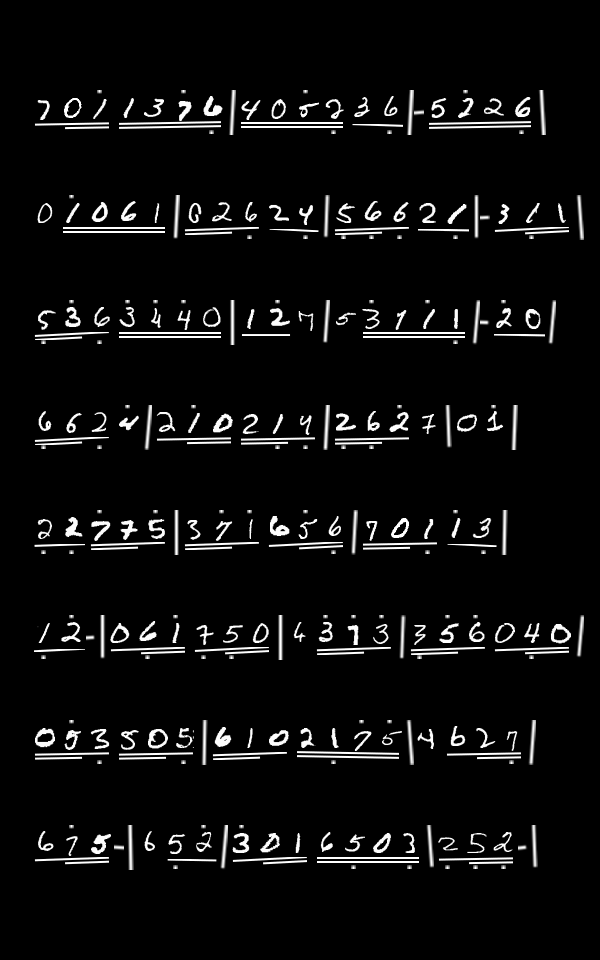 7 0 1 1 3 7 6 | 4 0 5 2 3 6 | - 5 2 2 6 |
0 1 0 6 1 | 0 2 6 2 4 | 5 6 6 2 1 | - 3 1 1 |
5 3 6 3 4 4 0 | 1 2 7 | 5 3 7 1 1 | - 2 0 |
6 6 2 4 | 2 1 0 2 1 4 | 2 6 2 7 | 0 1 |
2 2 7 7 5 | 3 7 1 6 5 6 | 7 0 1 1 3 |
1 2 - | 0 6 1 7 5 0 | 4 3 7 3 | 3 5 6 0 4 0 |
0 5 3 5 0 5 | 6 1 0 2 1 7 5 | 4 6 2 7 |
6 7 5 - | 6 5 2 | 3 0 1 6 5 0 3 | 2 5 2 - |